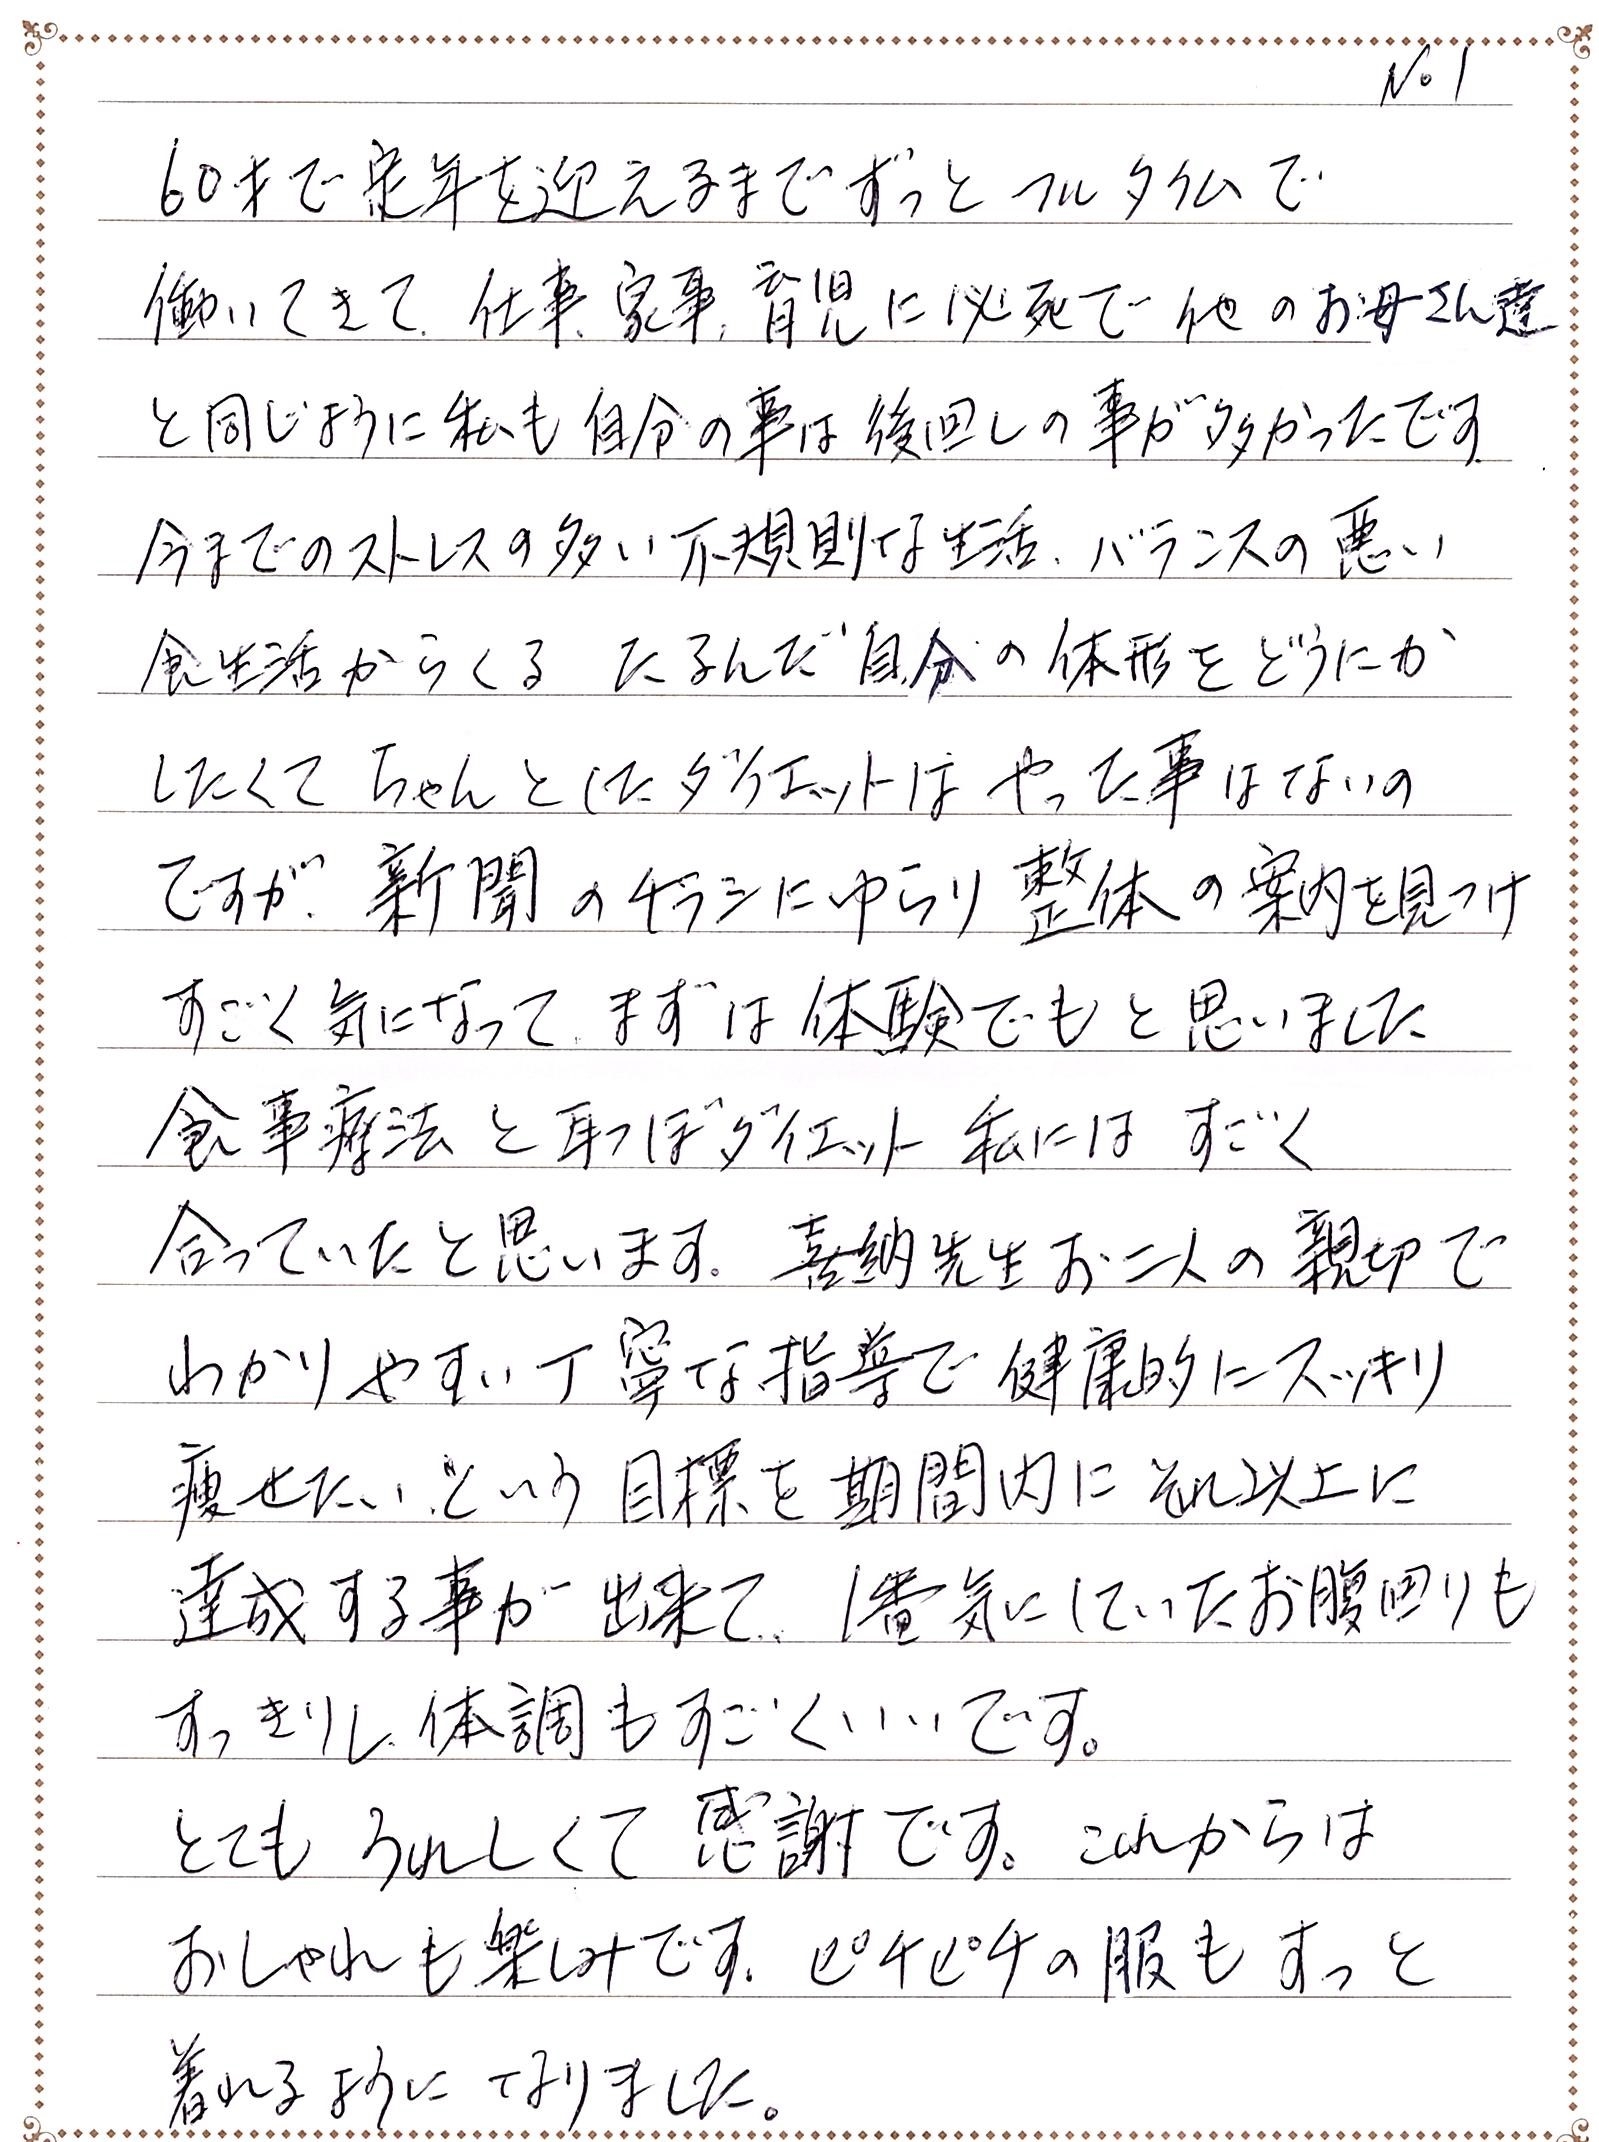 No1
60才で定年を迎えるまでずっとフルタイムで
働いてきて、仕事、家事、育児に必死で他のお母さん達
と同じように私も自分の事は後回しの事が多かったです
今までのストレスの多い不規則な生活、バランスの悪い
食生活からくる たるんだ自分の体形をどうにか
したくて ちゃんとしたダイエットは やった事はないの
ですが、新聞のチラシにゆらり整体の案内を見つけ
すごく気になって、まずは体験でもと思いました
食事療法と耳つぼダイエット 私には すごく
合っていたと思います。喜納先生お二人の親切で
わかりやすい丁寧な指導で健康的にスッキリ
痩せたい、という目標を期間内にそれ以上に
達成する事が出来て、1番気にしていたお腹回りも
すっきりし、体調もすごくいいです。
とても うれしくて感謝です。これからは
おしゃれも楽しみです。ピチピチの服もすっと
着れるようになりました。